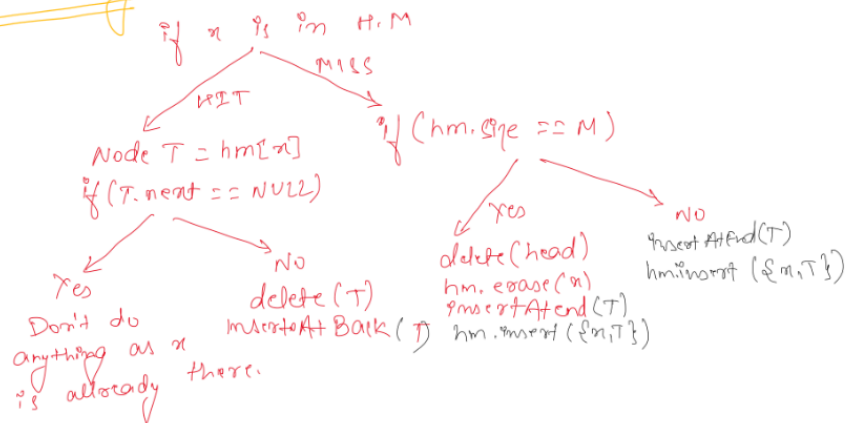 if x is in H.M
HIT
MISS
Node T = hm[x]
if (T.next == NULL)
Yes
Don't do
anything as x
is allready there.
No
delete (T)
InserteAt Back (T)
if (hm.size == M)
Yes
delete (head)
hm. erase (x)
insertAtend (T)
hm.insert ({x,T})
No
insert AtEnd (T)
hm.insert ({x,T})